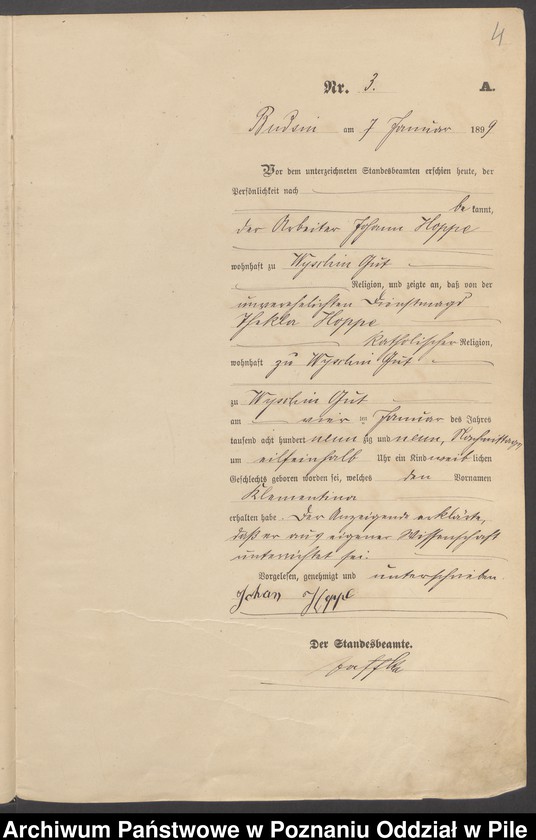 4
Nr. 3. A.
Budsin am 7 Januar 1899
Vor dem unterzeichneten Standesbeamten erschien heute, der
Persönlichkeit nach
be kannt,
der Arbeiter Johann Hoppe
wohnhaft zu Wyschin Gut
Religion, und zeigte an, daß von der
unverehelichten Dienstmagd
Thekla Hoppe
katholischer Religion,
wohnhaft zu Wyschin Gut
zu Wyschin Gut
am vier ten Januar des Jahres
tausend acht hundert neun zig und neun, Nachmittags
um eilfeinhalb Uhr ein Kind weib lichen
Geschlechts geboren worden sei, welches den Vornamen
Klementina
erhalten habe. Der Anzeigende erklärte,
daß er aus eigener Wissenschaft
unterrichtet sei.
Vorgelesen, genehmigt und unterschrieben.
Johan Hoppe
Der Standesbeamte.
Archiwum Państwowe w Poznaniu Oddział w Pile